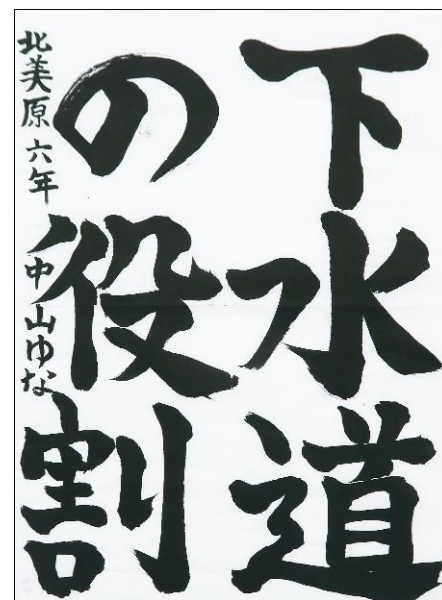 下水道
の役割
北美原六年 中山ゆな